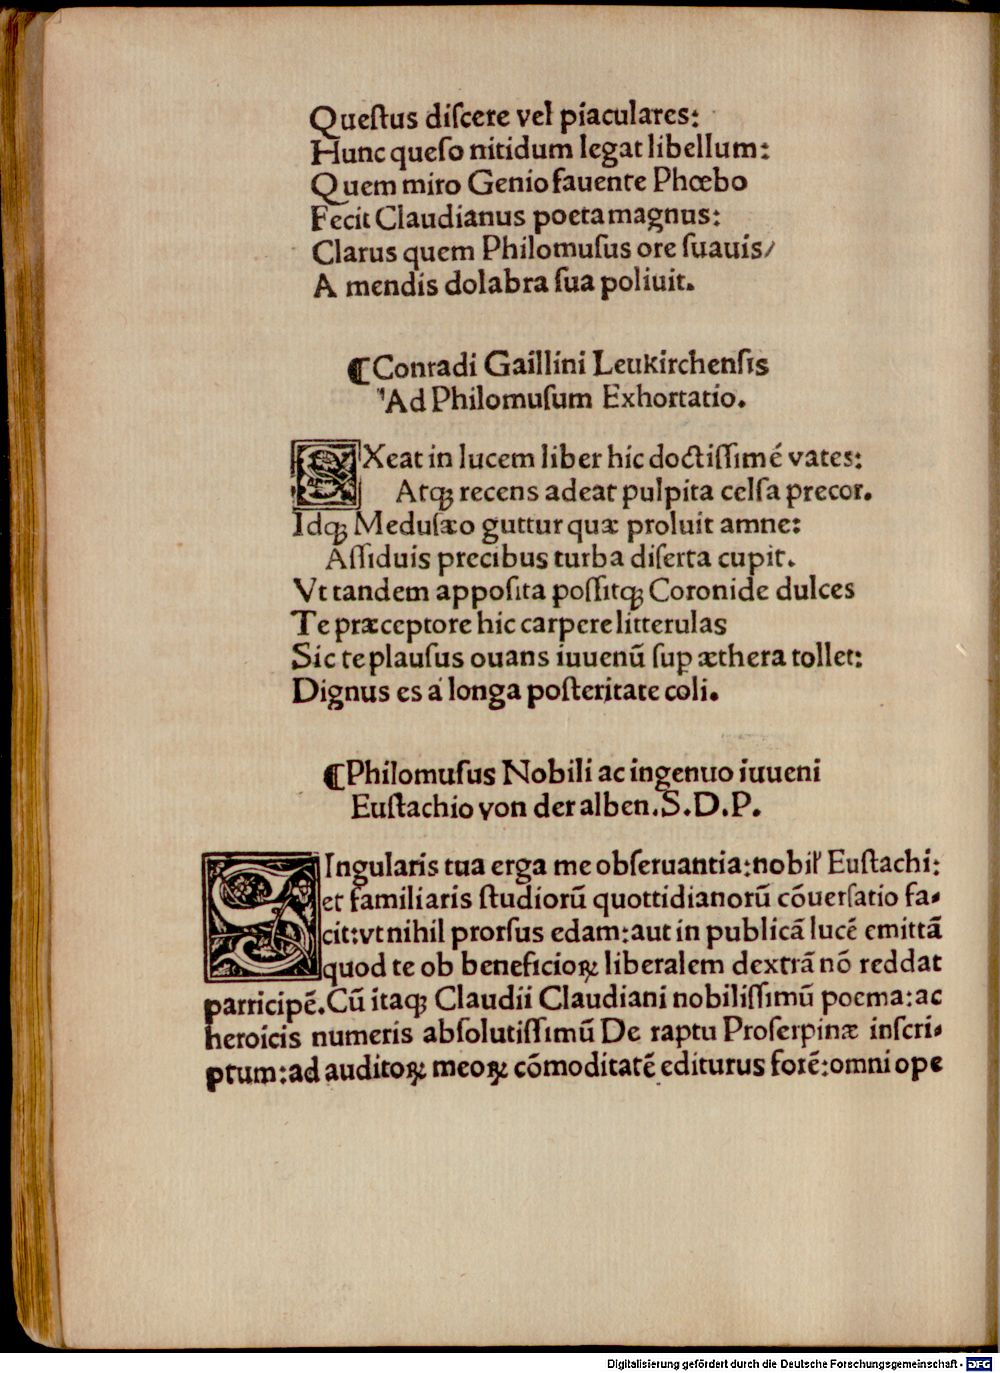 Queſtus diſcere vel piaculares:
Hunc queſo nitidum legat libellum:
Quem miro Genio fauente Phœbo
Fecit Claudianus poeta magnus:
Clarus quem Philomuſus ore ſuauis/
A mendis dolabra ſua poliuit.
¶Conradi Gaillini Leukirchenſis
Ad Philomuſum Exhortatio.
EXeat in lucem liber hic doctiſſimé vates:
Atqꝫ recens adeat pulpita celſa precor.
Idqꝫ Meduſæo guttur quæ proluit amne:
Aſſiduis precibus turba diſerta cupit.
Vt tandem appoſita poſſitqꝫ Coronide dulces
Te præceptore hic carpere litterulas
Sic te plauſus ouans iuuenū ſuꝑ æthera tollet:
Dignus es á longa poſteritate coli.
¶Philomuſus Nobili ac ingenuo iuueni
Euſtachio von der alben.S.D.P.
SIngularis tua erga me obſeruantia:nobil' Euſtachi:
et familiaris ſtudiorū quottidianorū cōuerſatio fa-
cit:vt nihil prorſus edam:aut in publicā lucē emittā
quod te ob beneficioꝝ liberalem dextrā nō reddat
parricipē.Cū itaqꝫ Claudii Claudiani nobiliſſimū poema:ac
heroicis numeris abſolutiſſimū De raptu Proſerpinæ inſcri-
ptum:ad auditoꝝ meoꝝ cōmoditatē editurus forē:omni ope
Digitalisierung gefördert durch die Deutsche Forschungsgemeinschaft - DFG